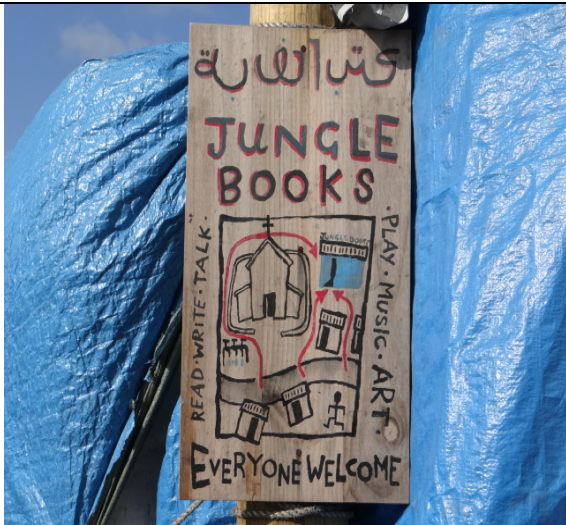 JUNGLE
BOOKS
READ·WRITE·TALK·
JUNGLE BOOKS
·PLAY·MUSIC·ART·
EVERYONE WELCOME